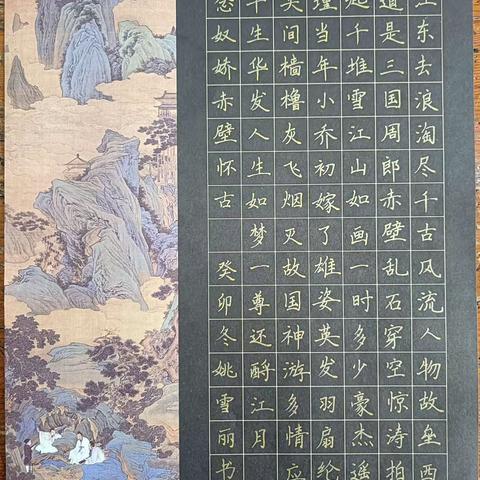 江东去浪淘尽千古风流人物故垒西
道是三国周郎赤壁乱石穿空惊涛拍
起千堆雪江山如画一时多少豪杰遥
瑾当年小乔初嫁了雄姿英发羽扇纶
笑间樯橹灰飞烟灭故国神游多情应
早生华发人生如梦一尊还酹江月
念奴娇赤壁怀古 癸卯冬姚雪丽书